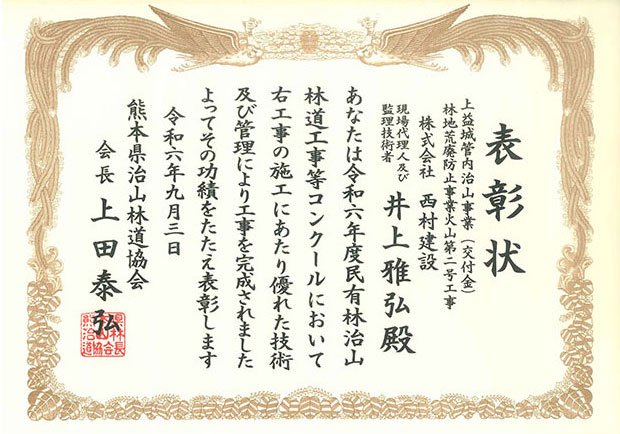 表彰状
上益城管内治山事業（交付金）
林地荒廃防止事業火山第二号工事
株式会社 西村建設
現場代理人及び
監理技術者
井上雅弘殿
あなたは令和六年度民有林治山
林道工事等コンクールにおいて
右工事の施工にあたり優れた技術
及び管理により工事を完成されました
よってその功績をたたえ表彰します
令和六年九月三日
熊本県治山林道協会
会長 上田泰弘